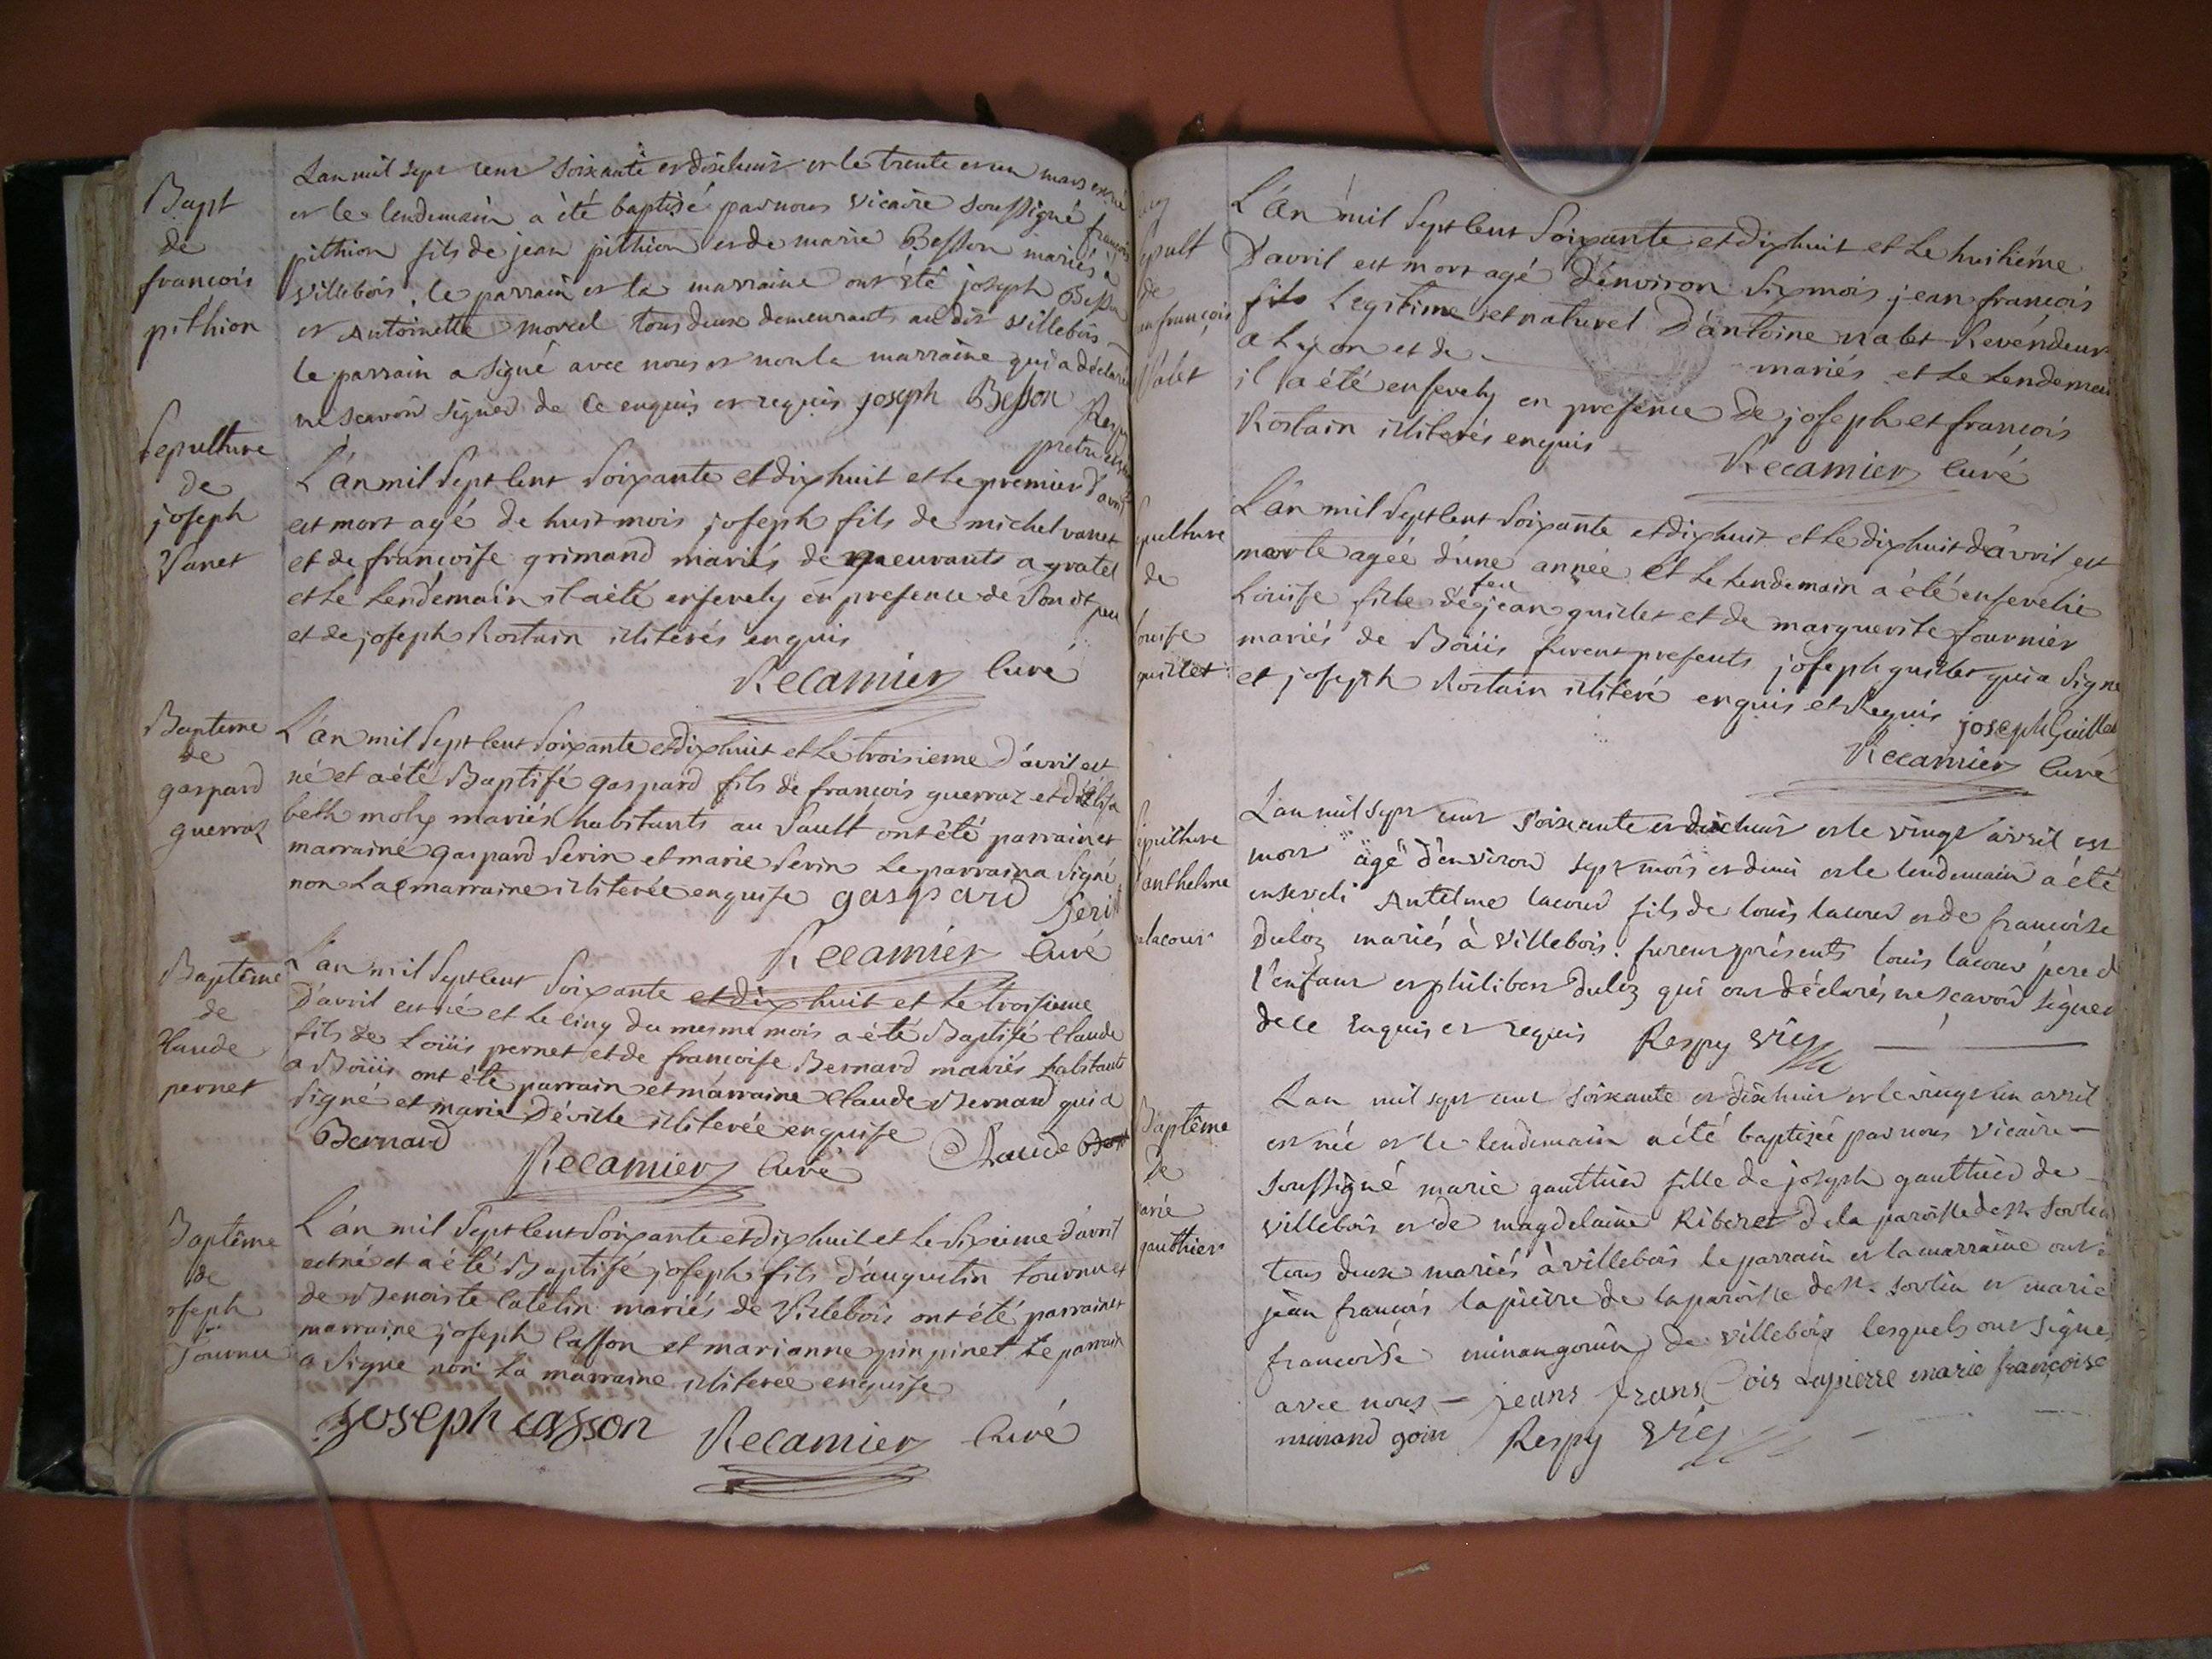 Bapt
de
françois
pithion
Lan mil sept cent soixante et dixhuit et le trente et un mars est né
et le lendemain a été baptisé par nous vicaire soussigné françois
pithion fils de jean pithion et de marie Besson mariés à
villebois. le parrain et la marraine ont été joseph Besson
et Antoinette morcel tous deux demeurants au dit villebois
le parrain a signé avec nous et non la marraine qui a déclaré
ne scavoir signer de ce enquis et requis joseph Besson Respy
pretre
Sepulture
de
joseph
Vanet
L'an mil Sept Cent Soixante et dixhuit et le premier d'avril
est mort agé de huit mois joseph fils de michel vanet
et de françoise grimand mariés demeurants a gratet
et le Lendemain il a eté ensevely en presence de Son dt pere
et de joseph Rostain illiterés enquis
Recamier Curé
Bapteme
de
gaspard
guerraz
L'an mil Sept Cent Soixante et dixhuit et Le troisieme d'avril est
né et a été Baptisé gaspard fils de françois guerraz et d'élisa
beth moly mariés habitants au Sault ont été parrain et
marraine gaspard Serin et marie Serin Le parrain a Signé
non La marraine illiterée enquise gaspard
Serin
Recamier Curé
Baptême
de
Claude
pernet
L'an mil Sept Cent Soixante et dix huit et Le troisieme
D'avril est né et Le cinq du mesme mois a été Baptisé Claude
fils de Loüis pernet et de françoise Bernard mariés habitants
a Boüis ont été parrain et marraine Claude Bernard qui a
Signé et marie Déville illiterée enquise Claude Ber
Bernard
Recamier Curé
Baptême
de
joseph
Tournu
L'an mil Sept Cent Soixante et dixhuit et Le Sixieme d'avril
est né et a été Baptisé joseph fils d'augustin tournu et
de Benoiste Catelin mariés de Villebois ont été parrain et
marraine joseph Casson et marianne pinpinet Le parrain
a Signe non La marraine illiterée enquise
joseph casson Recamier Curé
Sepult
de
jean françois
Nalet
L'an mil Sept Cent Soixante et dixhuit et Le huitiéme
D'avril est mort agé d'environ Six mois jean françois
fils Legitime et naturel D'antoine nalet Revéndeur
a Lyon et de mariés et Le Lendemain
il a été ensevely en presence de joseph et françois
Rostain illiterés enquis
Recamier Curé
Sepulture
de
Louise
guillet
L'an mil Sept Cent Soixante et dixhuit et Le dixhuit d'avril est
morte agée d'une année et Le Lendemain a été ensevelie
Louise fille de feu jean guillet et de marguerite fournier
mariés de Boüis furent presents joseph guillet qui a Signé
et joseph Rostain illiteré enquis et Requis joseph Guillet
Recamier Curé
Sepulture
d'anthelme
lacour
Lan mil sept cent soixante et dixhuit et le vingt avril est
mort agé d'environ sept mois et demi et le lendemain a été
enseveli Antelme lacour fils de louis lacour et de françoise
Duloz mariés à villebois. furent présents louis lacour père de
l'enfant et philibert Duloz qui ont déclarés ne scavoir signer
de ce enquis et requis Respy vic
Baptême
de
marie
gauthier
Lan mil sept cent soixante et dixhuit et le vingt un avril
est née et le lendemain a été baptisée par nous vicaire
soussigné marie gauthier fille de joseph gauthier de
villebois et de magdelaine Riberet de la paroisse de st. sorlin
tous deux mariés à villebois le parrain et la marraine ont été
jean françois lapierre de la paroisse de st. sorlin et marie
françoise minangouin de villebois lesquels ont signé
avec nous jeans frans Cois Lapierre marie françoise
minand goin Respy vic